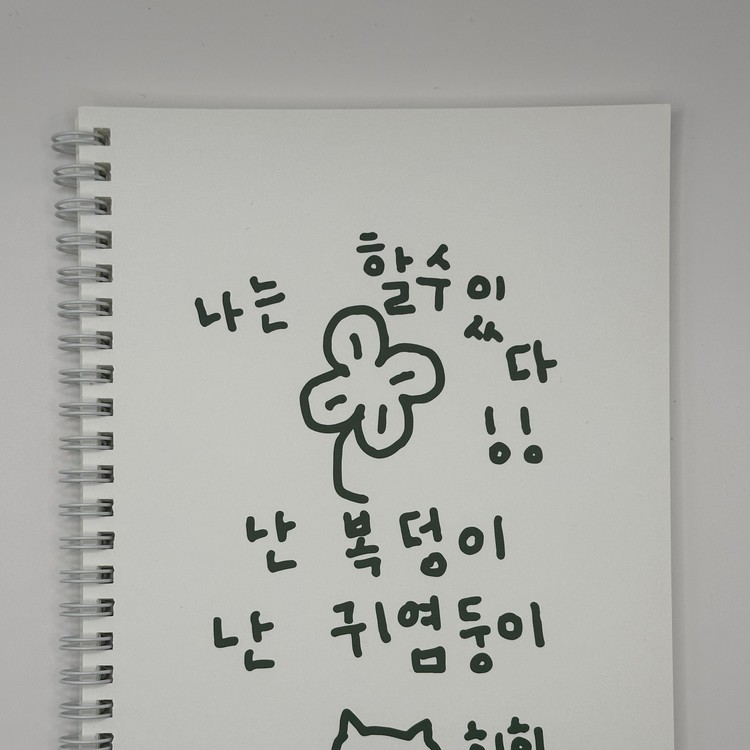 나는 할수있다!!
난 복덩이
난 귀염둥이
히히